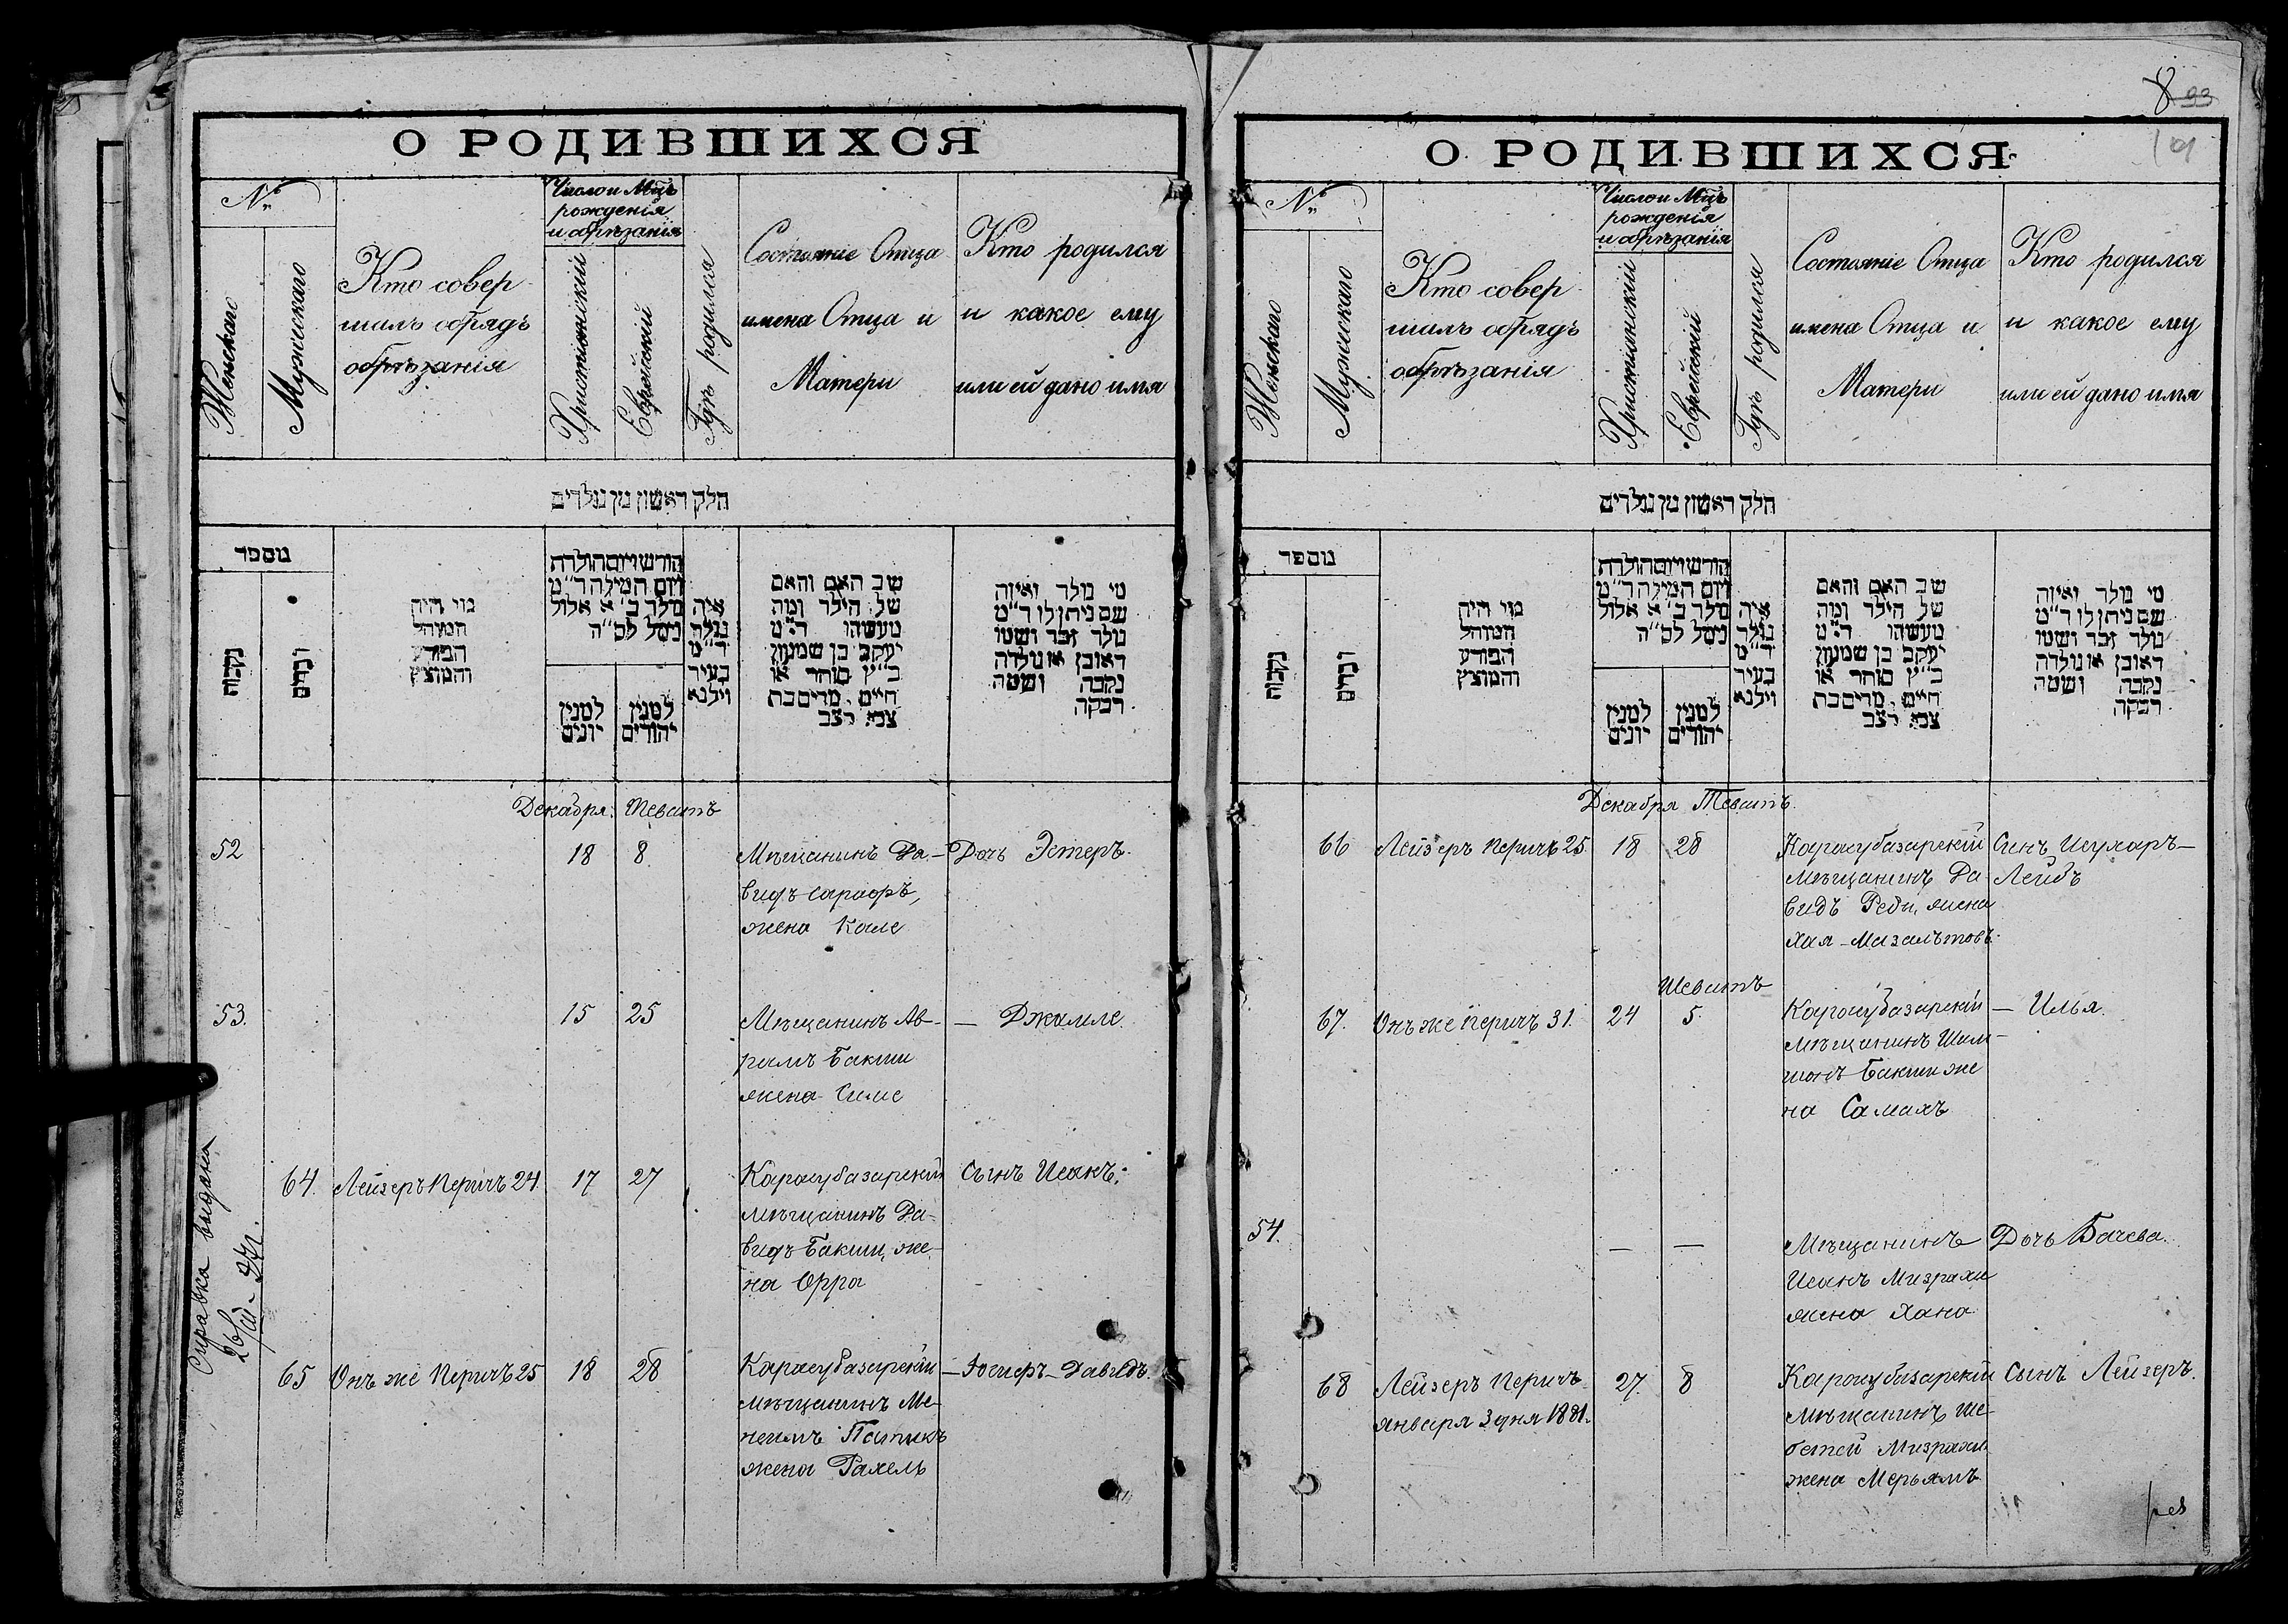 О РОДИВШИХСЯ
№
Женскаго
Мужескаго
Кто совер
шалъ обрядъ
обрѣзанія
Число и Мцъ
рожденія
и обрѣзанія
Христіянскій
Еврейскій
Гдѣ родился
Состояніе Отца
имена Отца и
Матери
Кто родился
и какое ему
или ей дано имя
חלק ראשון מן נולדים
מספר
נקבות
זכרים
מי היה
המוהל
הפורע
והמוצץ
חודש ויום הולדת
ויום המילה ד״מ
מולד ב׳ א אלול
נימל לס״ה
למנין
יונים
למנין
יהודים
איה
נולד
ד״מ
בעיר
וילנא
שב האם והאם
של הילד ומה
מעשהו ד״מ
יעקב בן שמעון
כ״ץ סוחר או
חיים, מרים בת
צבי
מי נולד ואיזה
שם ניתן לו ד״מ
נולד זכר ושמו
ראובן או נולדה
נקבה ושמה
רבקה
Декабря. Тевать
52
18 8.
Мѣщанинъ Да-
видъ Сарафъ,
жена Кале
Дочь Эстеръ.
53.
15 25
Мѣщанинъ Ав-
рамъ Бакши
жена Симе
— Джамиле.
64. Лейзеръ Перичъ 24 17 27
Карасубазарскій
мѣщанинъ Да-
видъ Бакши, же-
на Орра
Сынъ Исакъ.
Справка выдана
26/III-27г.
65 Онъ же Перичъ 25 18 28
Карасубазарскій
мѣщанинъ Ме-
нехимъ Патикъ
жена Рахель
— Іосифъ-Давидъ.
8 93
О РОДИВШИХСЯ
№
Женскаго
Мужескаго
Кто совер
шалъ обрядъ
обрѣзанія
Число и Мцъ
рожденія
и обрѣзанія
Христіянскій
Еврейскій
Гдѣ родился
Состояніе Отца
имена Отца и
Матери
Кто родился
и какое ему
или ей дано имя
חלק ראשון מן נולדים
מספר
נקבות
זכרים
מי היה
המוהל
הפורע
והמוצץ
חודש ויום הולדת
ויום המילה ד״מ
מולד ב׳ א אלול
נימל לס״ה
למנין
יונים
למנין
יהודים
איה
נולד
ד״מ
בעיר
וילנא
שב האם והאם
של הילד ומה
מעשהו ד״מ
יעקב בן שמעון
כ״ץ סוחר או
חיים, מרים בת
צבי
מי נולד ואיזה
שם ניתן לו ד״מ
נולד זכר ושמו
ראובן או נולדה
נקבה ושמה
רבקה
Декабря Тевать.
66 Лейзеръ Перичъ 25. 18 28
Карасубазарскій
мѣщанинъ Да-
видъ Реби, жена
Хая-Мазалътовъ.
Синъ Исухаръ-
Лейбъ
Шевать
67. Онъ же Перичъ 31. 24 5.
Карасубазарскій
мѣщанинъ Шам-
шонъ Бакши же
на Самахъ
— Илья.
54.
— —
Мѣщанинъ
Исакъ Мизрахи
жена Хана
Дочь Бачева.
68 Лейзеръ Перичъ 27. 8
Января 3 дня 1881.
Карасубазарскій
Мѣщанинъ Ше-
бетей Мизрахи
жена Мерьямъ
Сынъ Лейзеръ.